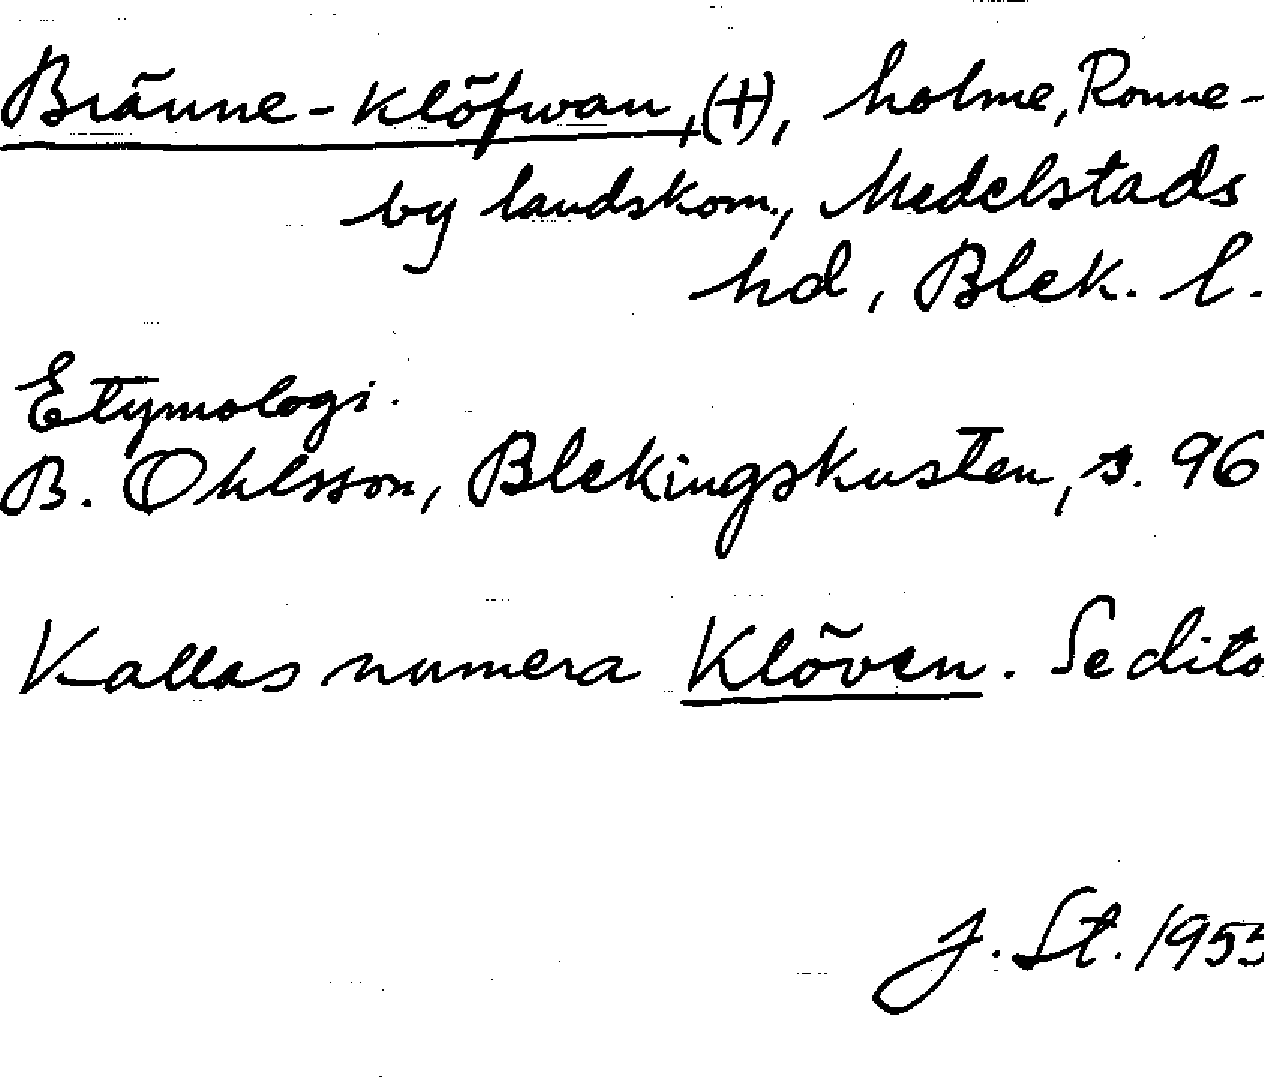 Bränne-klöfwan, (+), holme, Ronne-
by landskom., Medelstads
hd, Blek. l.
Etymologi.
B. Ohlsson, Blekingskusten, s. 96
Kallas numera Klöven. Se dito
J. St. 1955